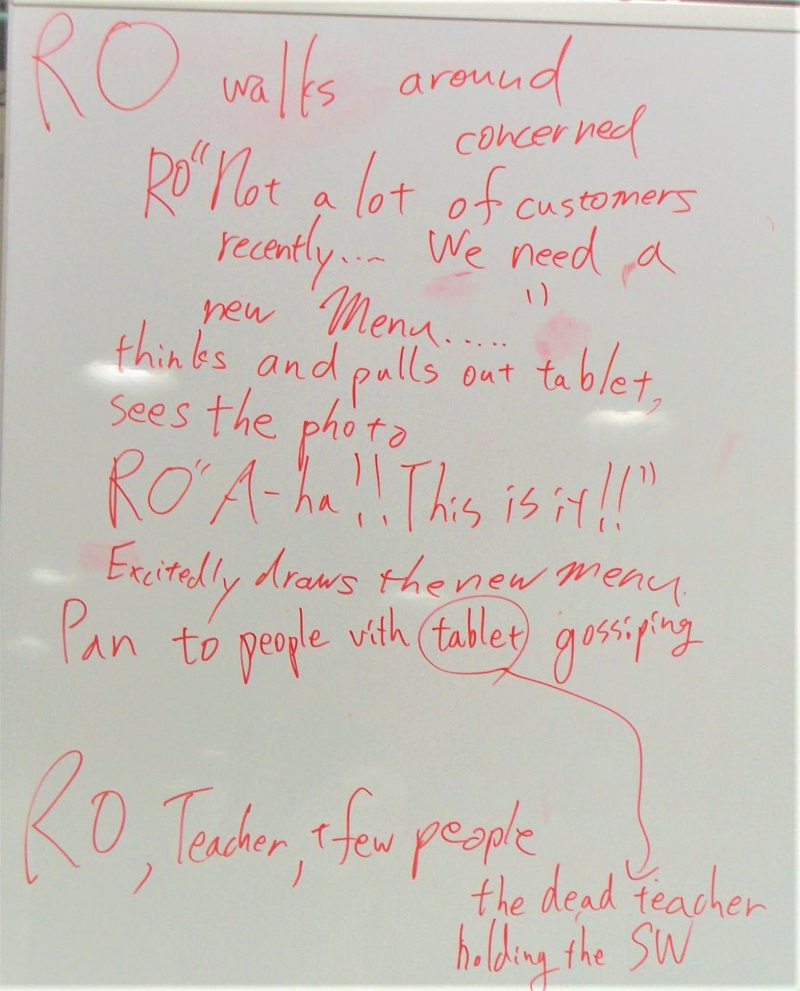 RO walks around
concerned
RO "Not a lot of customers
recently.... We need a
new Menu....."
thinks and pulls out tablet,
sees the photo
RO "A-ha!! This is it!!"
Excitedly draws the new menu.
Pan to people with tablet gossiping
RO, Teacher, + few people
the dead teacher
holding the SW